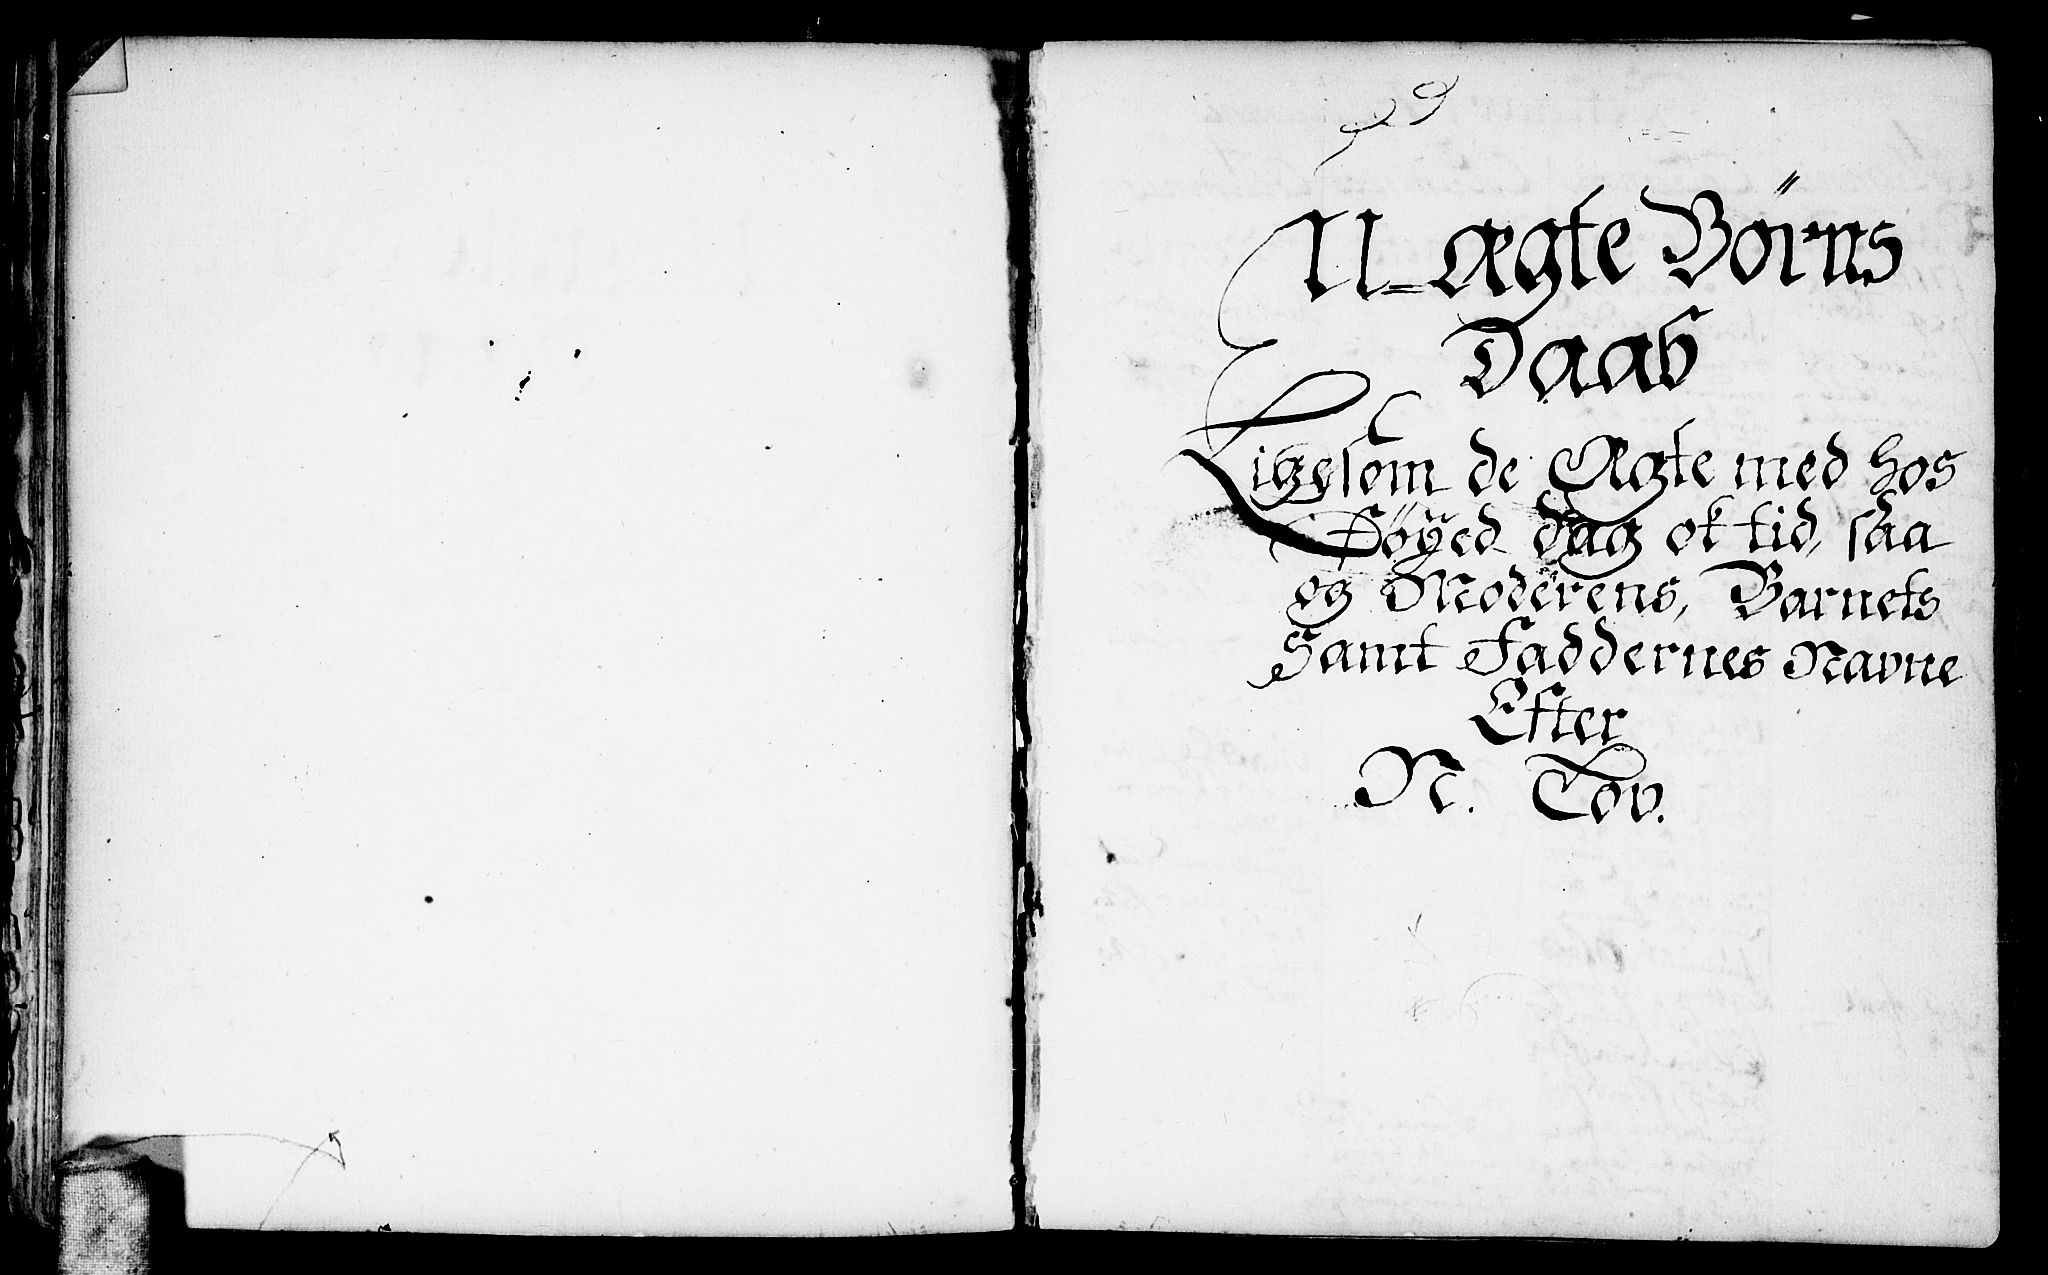 U-ægte Börns
Daab
Ligesom de Ægte med hos
Föÿed dag ok tid, saa
og Moderens, Barnets
Samt Faddernes Navne
Efter
N. Lov.